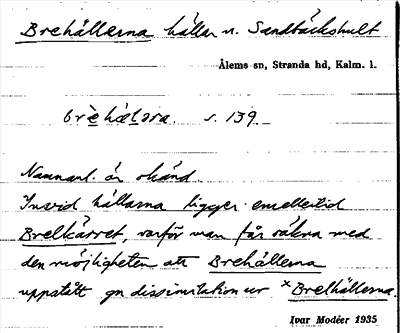 Brehällerna hällar n. Sandbäckshult
Ålems sn, Stranda hd, Kalm. l.
brèhælara. s. 139.
Namnanl. är okänd.
Invid hällarna ligger emellertid
Brelkärret, varför man får räkna med
den möjligheten att Brehällerna
uppstått gn dissimilation ur ×Brelhällerna.
Ivar Modéer 1935